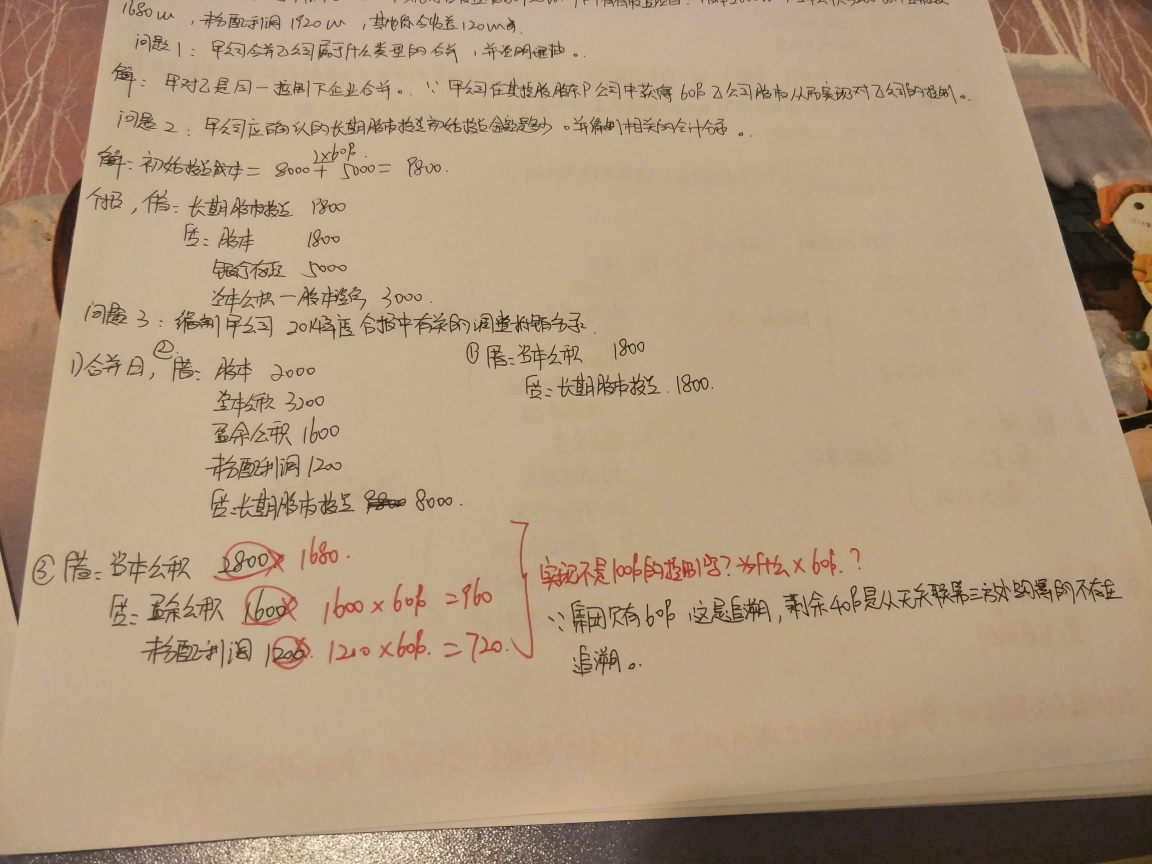 1680w，未分配利润1920w，其他综合收益120w。
问题1：甲公司合并乙公司属于什么类型的合并，并说明理由。
解：甲对乙是同一控制下企业合并。∵甲公司在其控股股东P公司中获得60%乙公司股市从而实现对乙公司的控制。
问题2：甲公司应确认的长期股市投资初始投资金额是多少。并编制相关的会计分录。
解：初始投资成本＝8000×60%＋5000＝9800.
个报，借：长期股市投资 9800
贷：股本 1800
银行存款 5000
资本公积－股本溢价 3000.
问题3：编制甲公司2014年度合报中有关的调整抵销分录.
1)合并日，②借：股本 2000
资本公积 3200
盈余公积 1600
未分配利润 1200
贷：长期股市投资 8000.
①借：资本公积 1800
贷：长期股市投资. 1800.
③借：资本公积 2800 1680.
贷：盈余公积 1600 1600×60%＝960
未分配利润 1200 1200×60%.＝720.
实现不是100%的控制吗？为什么×60%.？
∵集团只有60%，这是追溯，剩余40%是从无关联第三方处购买的不存在
追溯。